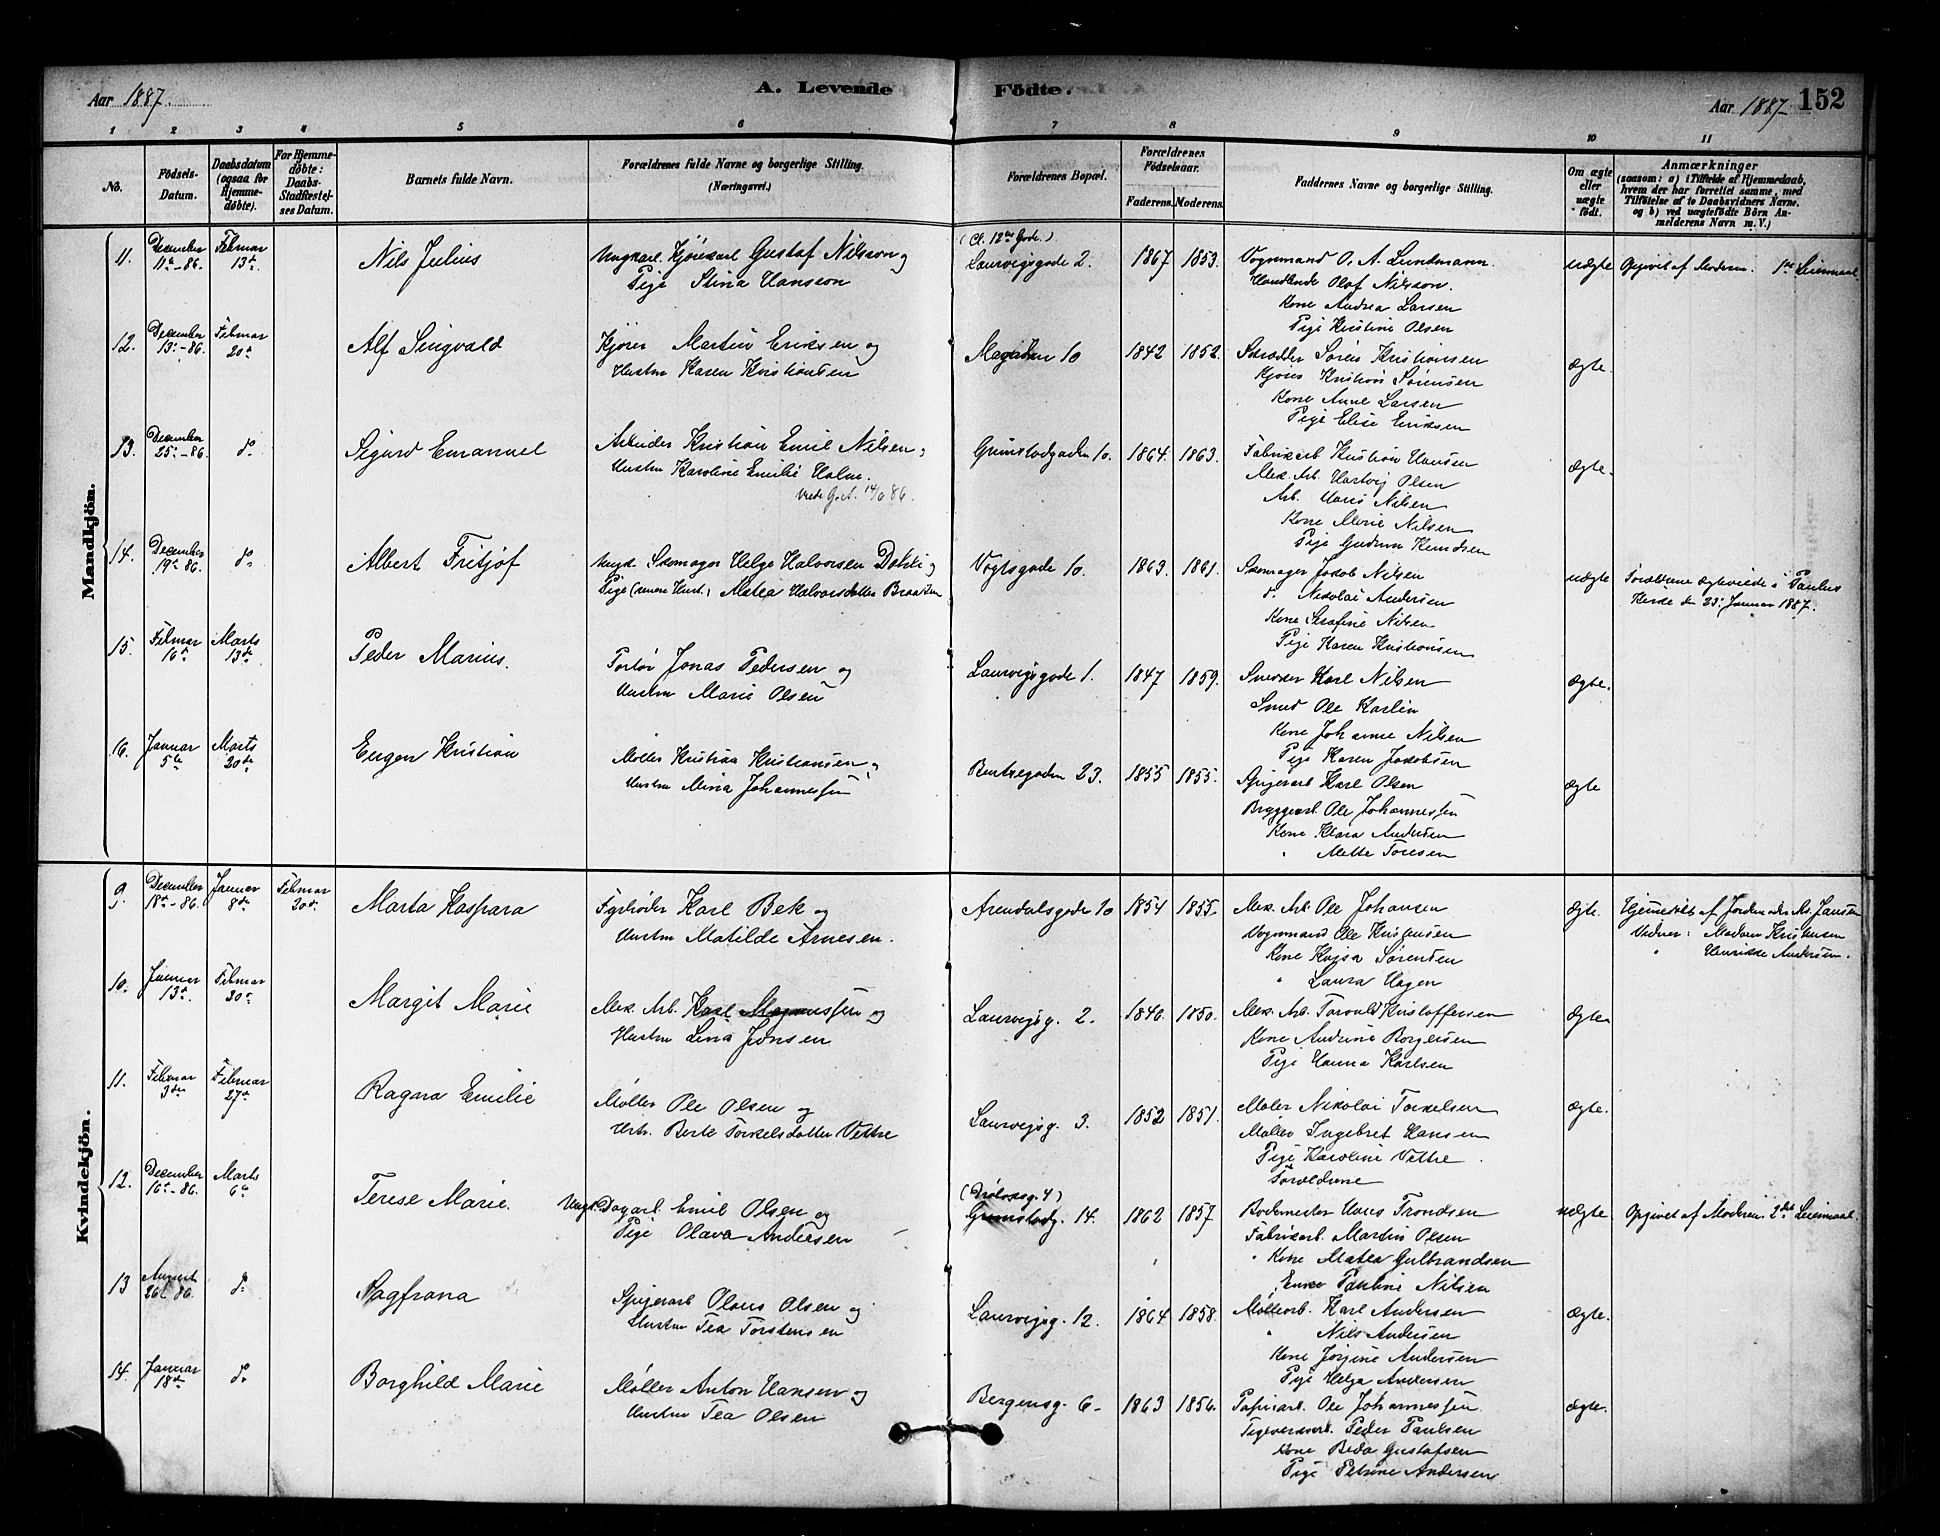 Aar 1887. A. Levende Födte. Aar 1887 152
1 2 3 4 5 6 7 8 9 10 11
No.
Födsels-Datum.
Daabsdatum (ogsaa for Hjemme-döbte).
For Hjemme-döbte: Daabs-Stadfæstel-ses Datum.
Barnets fulde Navn.
Forældrenes fulde Navne og borgerlige Stilling.
(Næringsvei.)
Forældrenes Bopæl.
Forældrenes Födselsaar.
Faderens. Moderens.
Faddernes Navne og borgerlige Stilling.
Om ægte eller uægte födt.
Anmærkninger
(saasom: a) i Tilfælde af Hjemmedaab,
hvem der har forrettet samme, med
Tilföielse af to Daabsvidners Navne.
og b) ved uægtefödte Börn An-
melderens Navn m. V.)
Mandkjön.
11. December 11te-86. Februar 13de Nils Julius Ungkarl Kjørekarl Gustaf Nilsson og
Pige Stina Hansson
Laurvigsgade 2. 1867 1853. Vognmand O. A. Lundmann.
Handlende Olof Nilsson.
Kone Andrea Larsen
Pige Kristine Olsen
uægte Opgivet af Moderen. 1ste Leiermaal
12. December 13de-86. Februar 20de Alf Singvald Kjører Martin Eriksen og
Hustru Karen Kristiansen
10 1842 1852. Skrædder Søren Kristiansen
Kjører Kristian Sørensen
Kone Anne Larsen
Pige Elise Eriksen
ægte.
13. December 25de-86. do Sigurd Emanuel Arbeider Kristian Emil Nilsen og
Hustru Karoline Emilie Holm.
Grimstadgaden 10. 1864. 1863. Fabrikarb Kristian Hansen
Mek. Arb. Hartvig Olsen
Arb. Hans Nilsen
Kone Marie Nilsen
Pige Gudrun Knudsen
ægte.
14. December 19de 86. do Albert Fritjof Ungk. Skomager Helge Halvorsen Dokli og
Pige (senere Hust.) Matea Halvorsdatter Braaten
Vogtsgade 10. 1863. 1861. Skomager Jakob Nilsen
do Nikolai Andersen
Kone Serafine Nilsen
Pige Karen Kristiansen
uægte Forældrene ægteviede i Paulus
Kirke den 23de Januar 1887.
15. Februar 16de Marts 13de Peder Marius. Portør Jonas Pedersen og
Hustru Marie Olsen
Laurvigsgade 1. 1847 1859. Snedker Karl Nilsen
Smed Ole Karlin
Kone Johanne Nilsen
Pige Karen Jakobsen
ægte.
16. Januar 5te Marts 20de Eugen Kristian Møller Kristian Kristiansen og
Hustru Mina Johannessen
Bentsegaden 23. 1855 1855. Spigerarb Karl Olsen
Bryggearb. Ole Johannessen
Kone Klara Andersen
" Mette Toresen
ægte
Kvindekjön.
9. December 18de-86. Januar 8de Februar 20de Marta Kaspara Fyrbøder Karl Bek og
Hustru Matilde Arnesen.
Arendalsgade 10 1854 1855. Mek. Arb. Ole Johansen
Vognmand Ole Kristensen
Kone Kajsa Sørensen
" Laura Hagen
ægte. Hjemmedøbt af Jordemoder Ms. Jansen
Vidner: Madam Kristensen
" Henrikke Andersen.
10. Januar 13de Februar 20de Margit Marie Mek. Arb. Karl Magnussen og
Hustru Lina Jonsen
Laurvigsg. 2. 1840. 1850. Mek. Arb. Torvald Kristoffersen
Kone Andrine Borgersen
Pige Hanna Karlsen
ægte
11. Februar 3die Februar 27de Ragna Emilie Møller Ole Olsen og
Hstr. Berte Torkelsdatter Vettre
Laurvigsg. 3. 1852 1851. Maler Nikolai Torkelsen
Møller Ingebret Hansen
Pige Karoline Vettre.
Forældrene
ægte.
12. December 16de-86. Marts 6te Terese Marie. Ungk. Dagarb. Emil Olsen og
Pige Olava Andersen
Grimstadg. 14. 1862 1857 Bademester Hans Trondsen
Fabrikarb. Martin Olsen
Kone Matea Gulbrandsen
Enke Pauline Nilsen
uægte Opgivet af Moderen. 2det Leiermaal.
13 August 26de 86. do Dagfrana Spigerarb Olaus Olsen og
Hustru Tea Torstensen
Laurvigsg. 12. 1864 1858. Møllearb. Karl Andersen
" Nils Andersen
Kone Jørgine Andersen
Pige Helga Andersen
ægte.
14. Januar 18de do Borghild Marie Møller Anton Hansen og
Hustru Tea Olsen
Bergensg. 6 1863 1856. Papirarb. Ole Johannessen.
Teglværksarb. Peder Paulsen
Kone Beda Gustafsen
Pige Petrine Andersen
ægte.